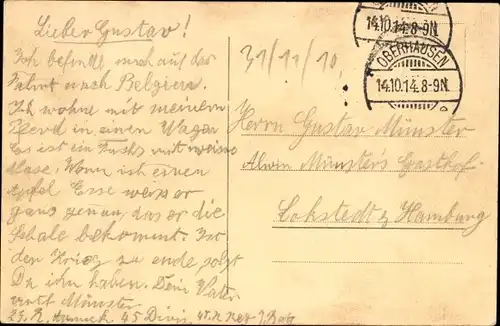 Lieber Gustav!
Ich befinde mich auf der
Fahrt nach Belgien.
Ich wohne mit meinem
Pferd in einen Wagen
Es ist ein Fuchs mit weiser
Nase. Wenn ich einen
Apfel Esse weis er
ganz genau, das er die
Schale bekommt. Ist
der Krieg zu ende, solst
Du ihn haben. Dein Vater
Münster
45 Divis.
31/11/10,
14.10.14.8-9N.
OBERHAUSEN
14.10.14.8-9N.
Herrn Gustav Münster
Alwin Münster's Gasthof
Lokstedt b/ Hamburg